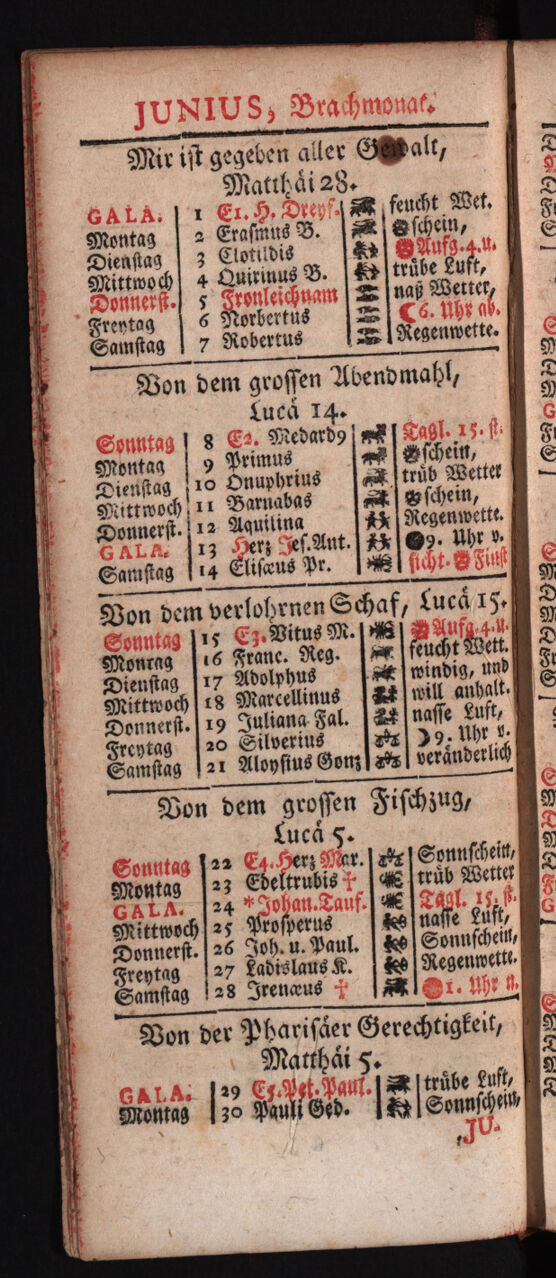 JUNIUS, Brachmonat.
Mir ist gegeben aller Gewalt,
Matthäi 28.
GALA. 1 E1. H. Dreyf. feucht Wet.
Montag 2 Erasmus B. schein,
Dienstag 3 Clotildis Aufg. 4. u.
Mittwoch 4 Quirinus B. trübe Luft,
Donnerst. 5 Fronleichnam naß Wetter,
Freytag 6 Norbertus 6. Uhr ab.
Samstag 7 Robertus Regenwette.
Von dem grossen Abendmahl,
Lucä 14.
Sonntag 8 E2. Medard9 Tagl. 15. st.
Montag 9 Primus schein,
Dienstag 10 Onuphrius trüb Wetter
Mittwoch 11 Barnabas schein,
Donnerst. 12 Aquilina Regenwette.
GALA. 13 Herz Jes. Ant. 9. Uhr v.
Samstag 14 Elisæus Pr. sicht. Finst
Von dem verlohrnen Schaf, Lucä 15.
Sonntag 15 E3. Vitus M. Aufg. 4. u.
Montag 16 Franc. Reg. feucht Wett.
Dienstag 17 Adolphus windig, und
Mittwoch 18 Marcellinus will anhalt.
Donnerst. 19 Juliana Fal. nasse Luft,
Freytag 20 Silverius 9. Uhr v.
Samstag 21 Aloysius Gonz veränderlich
Von dem grossen Fischzug,
Lucä 5.
Sonntag 22 E4. Herz Mar. Sonnschein,
Montag 23 Edeltrudis † trüb Wetter
GALA. 24 * Johan. Tauf. Tagl. 15. st.
Mittwoch 25 Prosperus nasse Luft,
Donnerst. 26 Joh. u. Paul. Sonnschein,
Freytag 27 Ladislaus K. Regenwette.
Samstag 28 Irenæus † 1. Uhr n.
Von der Pharisäer Gerechtigkeit,
Matthäi 5.
GALA. 29 E5. Pet. Paul. trübe Luft,
Montag 30 Pauli Ged. Sonnschein,
JU.